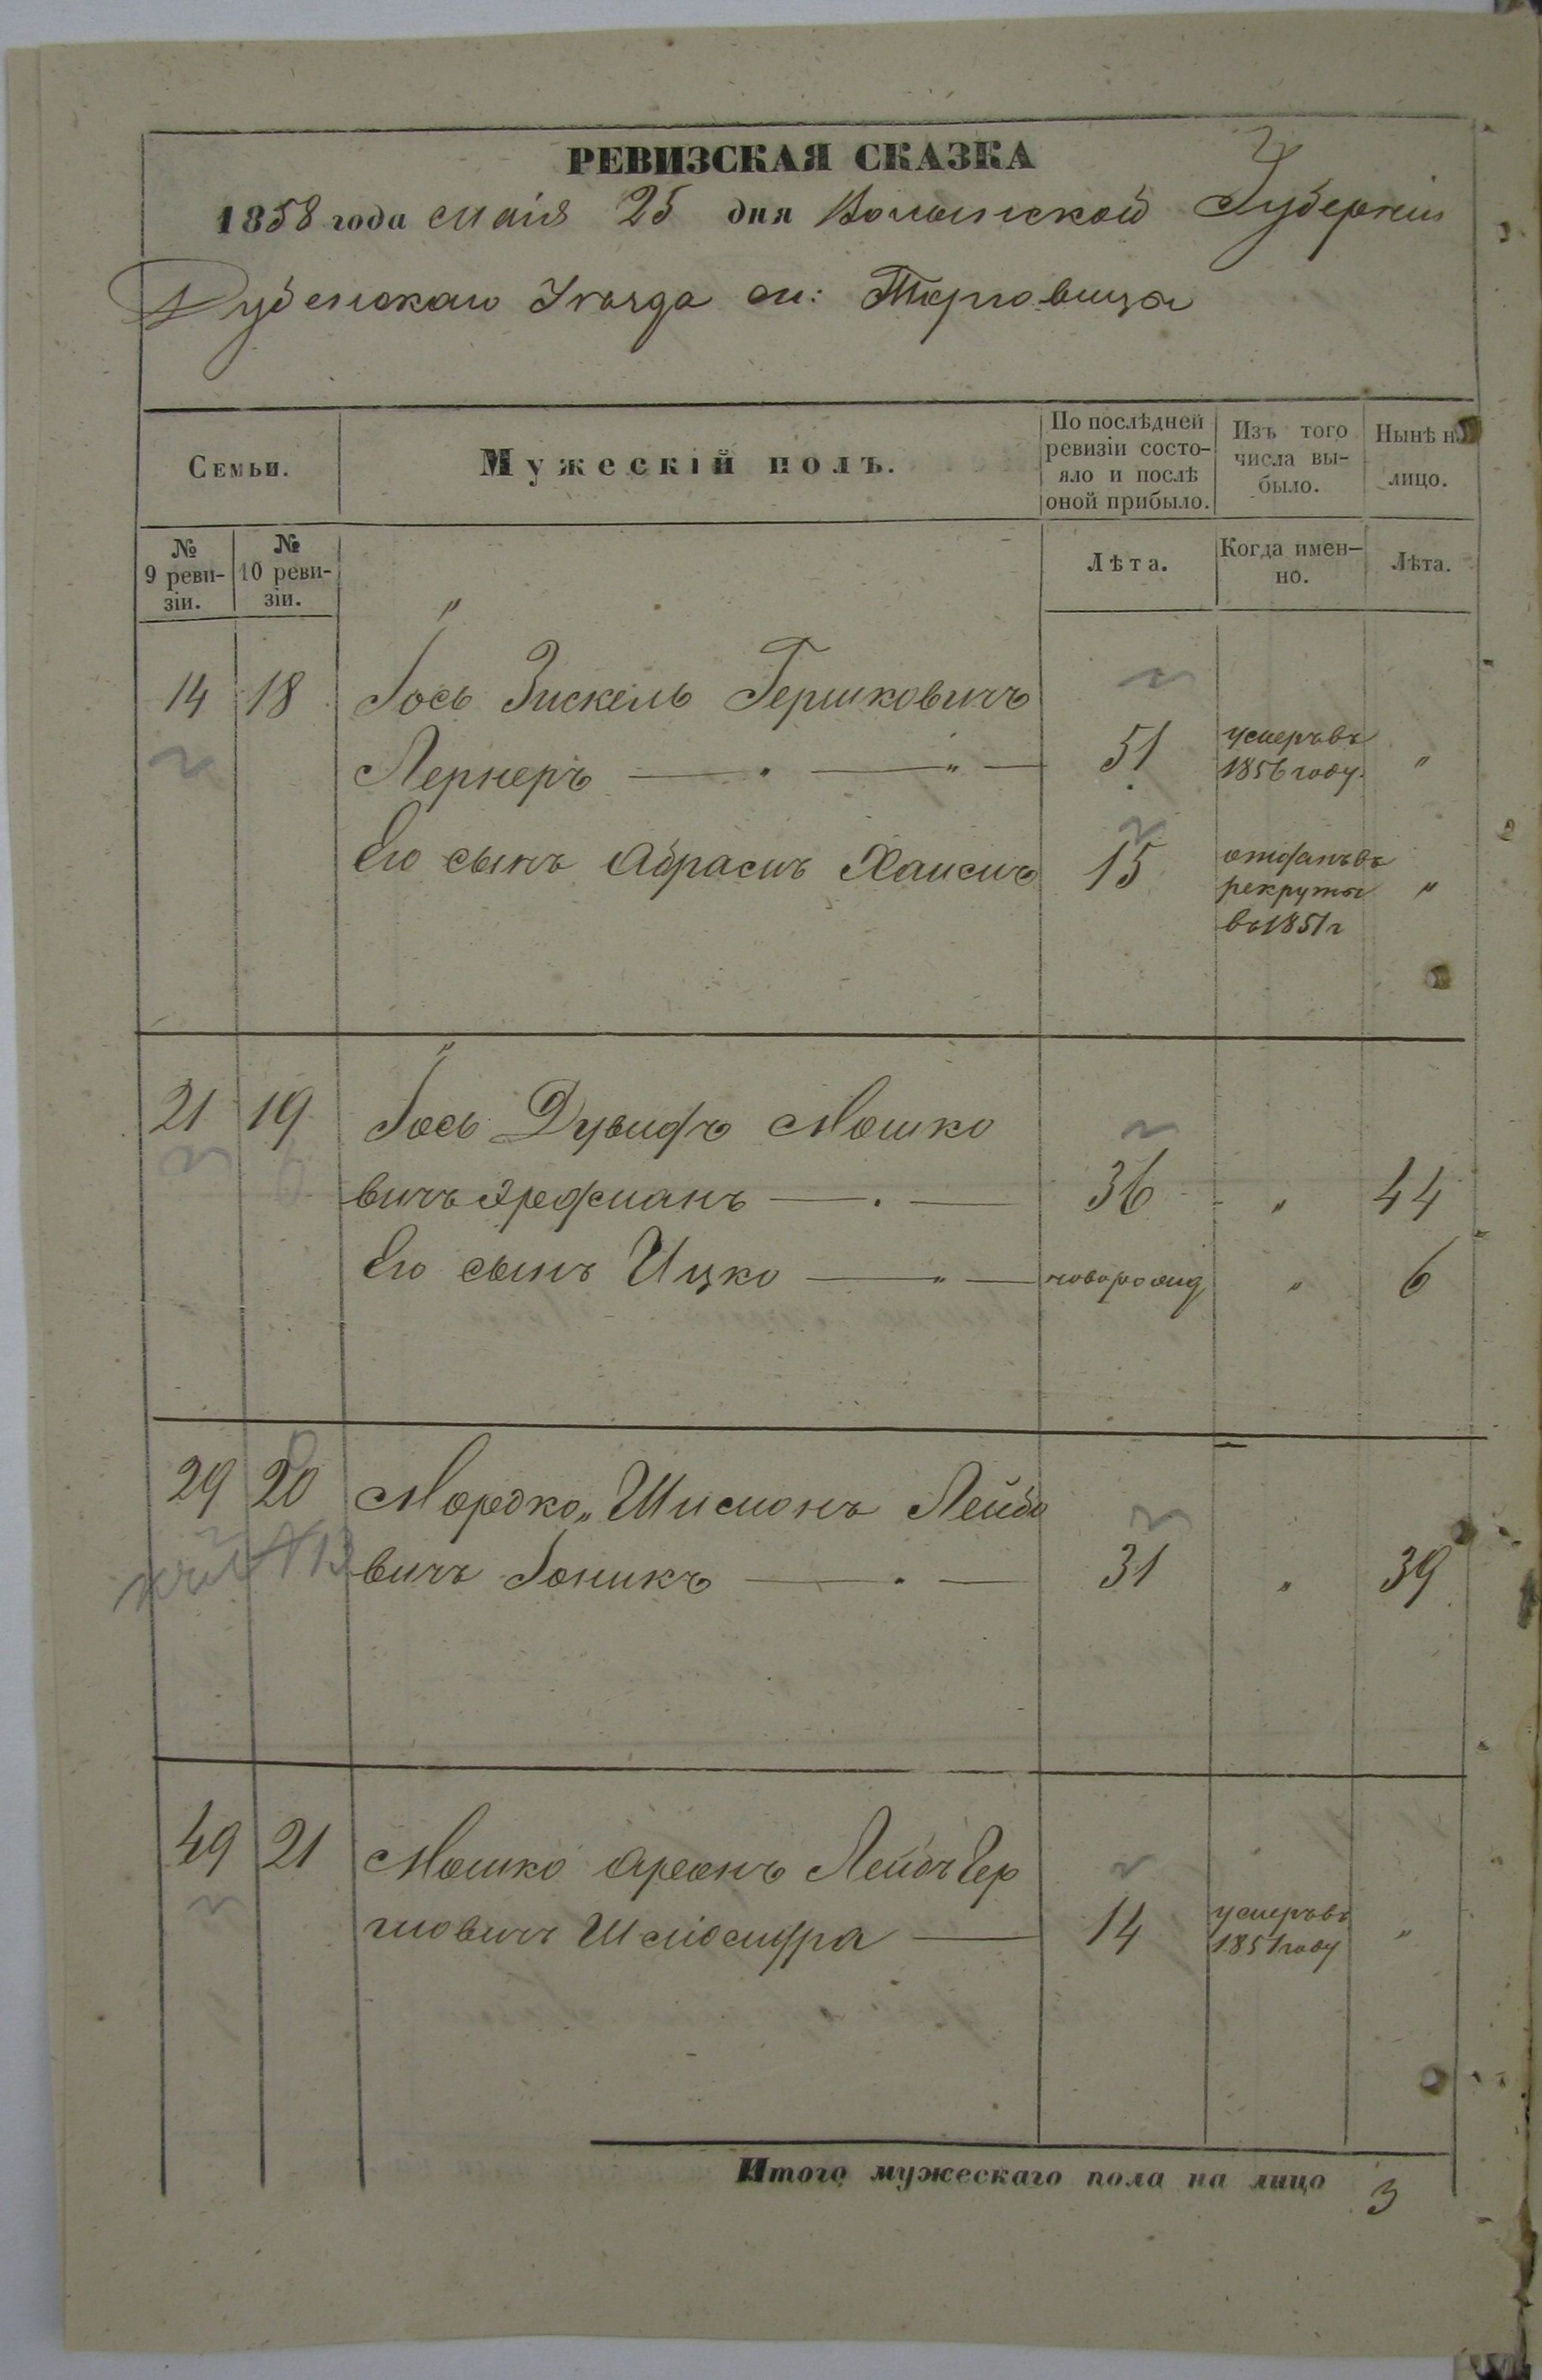 РЕВИЗСКАЯ СКАЗКА
1858 года маія 25 дня Волынской Губерніи
Дубенскаго Уѣзда м: Торговицы
Семьи.
Мужескій полъ.
По послѣдней ревизіи состо-
яло и послѣ
оной прибыло.
Изъ того
числа вы-
было.
Нынѣ н
лицо.
№
9 реви-
зіи.
№
10 реви-
зіи.
Лѣта.
Когда имен-
но.
Лѣта.
14 18 Іось Зискель Гершковичъ
Лернеръ 51 умеръ въ
1856 году. "
Его сынъ Абрамъ Хаимъ 15 отданъ въ
рекруты "
въ 1851 г
21 19 Іось Дувидъ Мошко
вичъ Эрдманъ 36 " 44
Его сынъ Ицко новорожд " 6
29 20 Мордко Шимонъ Лейбо
вичъ Гоникъ 31 " 39
49 21 Мошко Аронъ Лейбъ Бер
ковичъ 14 умеръ въ
1851 году "
Итого мужескаго пола на лицо 3